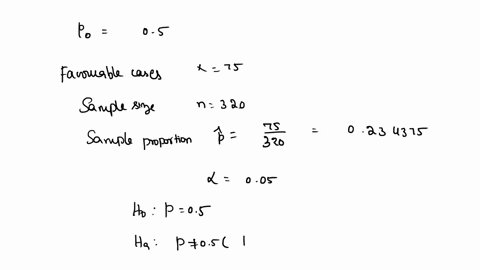 P₀ = 0.5
Favourable cases x = 75
Sample size n = 320
Sample proportion p̂ = 75/320 = 0.234375
α = 0.05
H₀ : p = 0.5
Ha : p ≠ 0.5 (